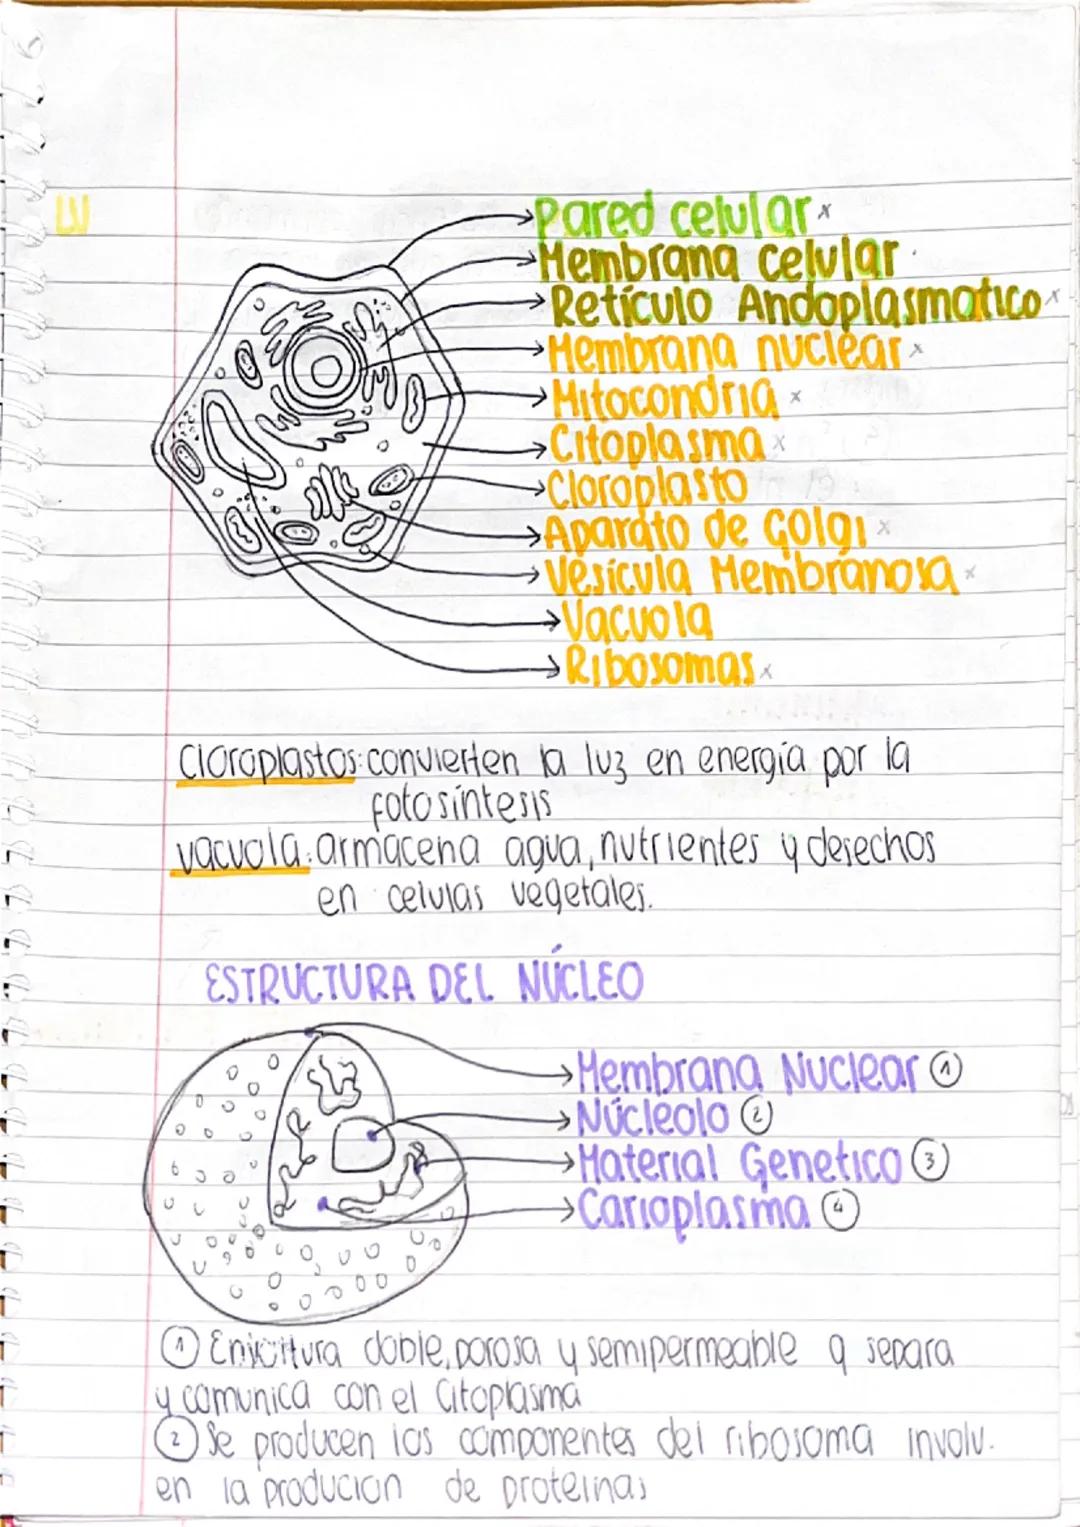 Pared celular x
Membrana celular.
Retículo Andoplasmatico x
Membrana nuclear x
Mitocondria x
Citoplasma x
Cloroplasto
Aparato de Golgi x
Vesícula Membranosa x
Vacuola
Ribosomas x
Cloroplastos: convierten la luz en energía por la
fotosíntesis
vacuola: armacena agua, nutrientes y desechos
en celulas vegetales.
ESTRUCTURA DEL NÚCLEO
Membrana Nuclear ①
Núcleolo ②
Material Genetico ③
Carioplasma ④
① doble, porosa y semipermeable q separa
y comunica con el Citoplasma
② Se producen los componentes del ribosoma involu.
en la producion de proteinas